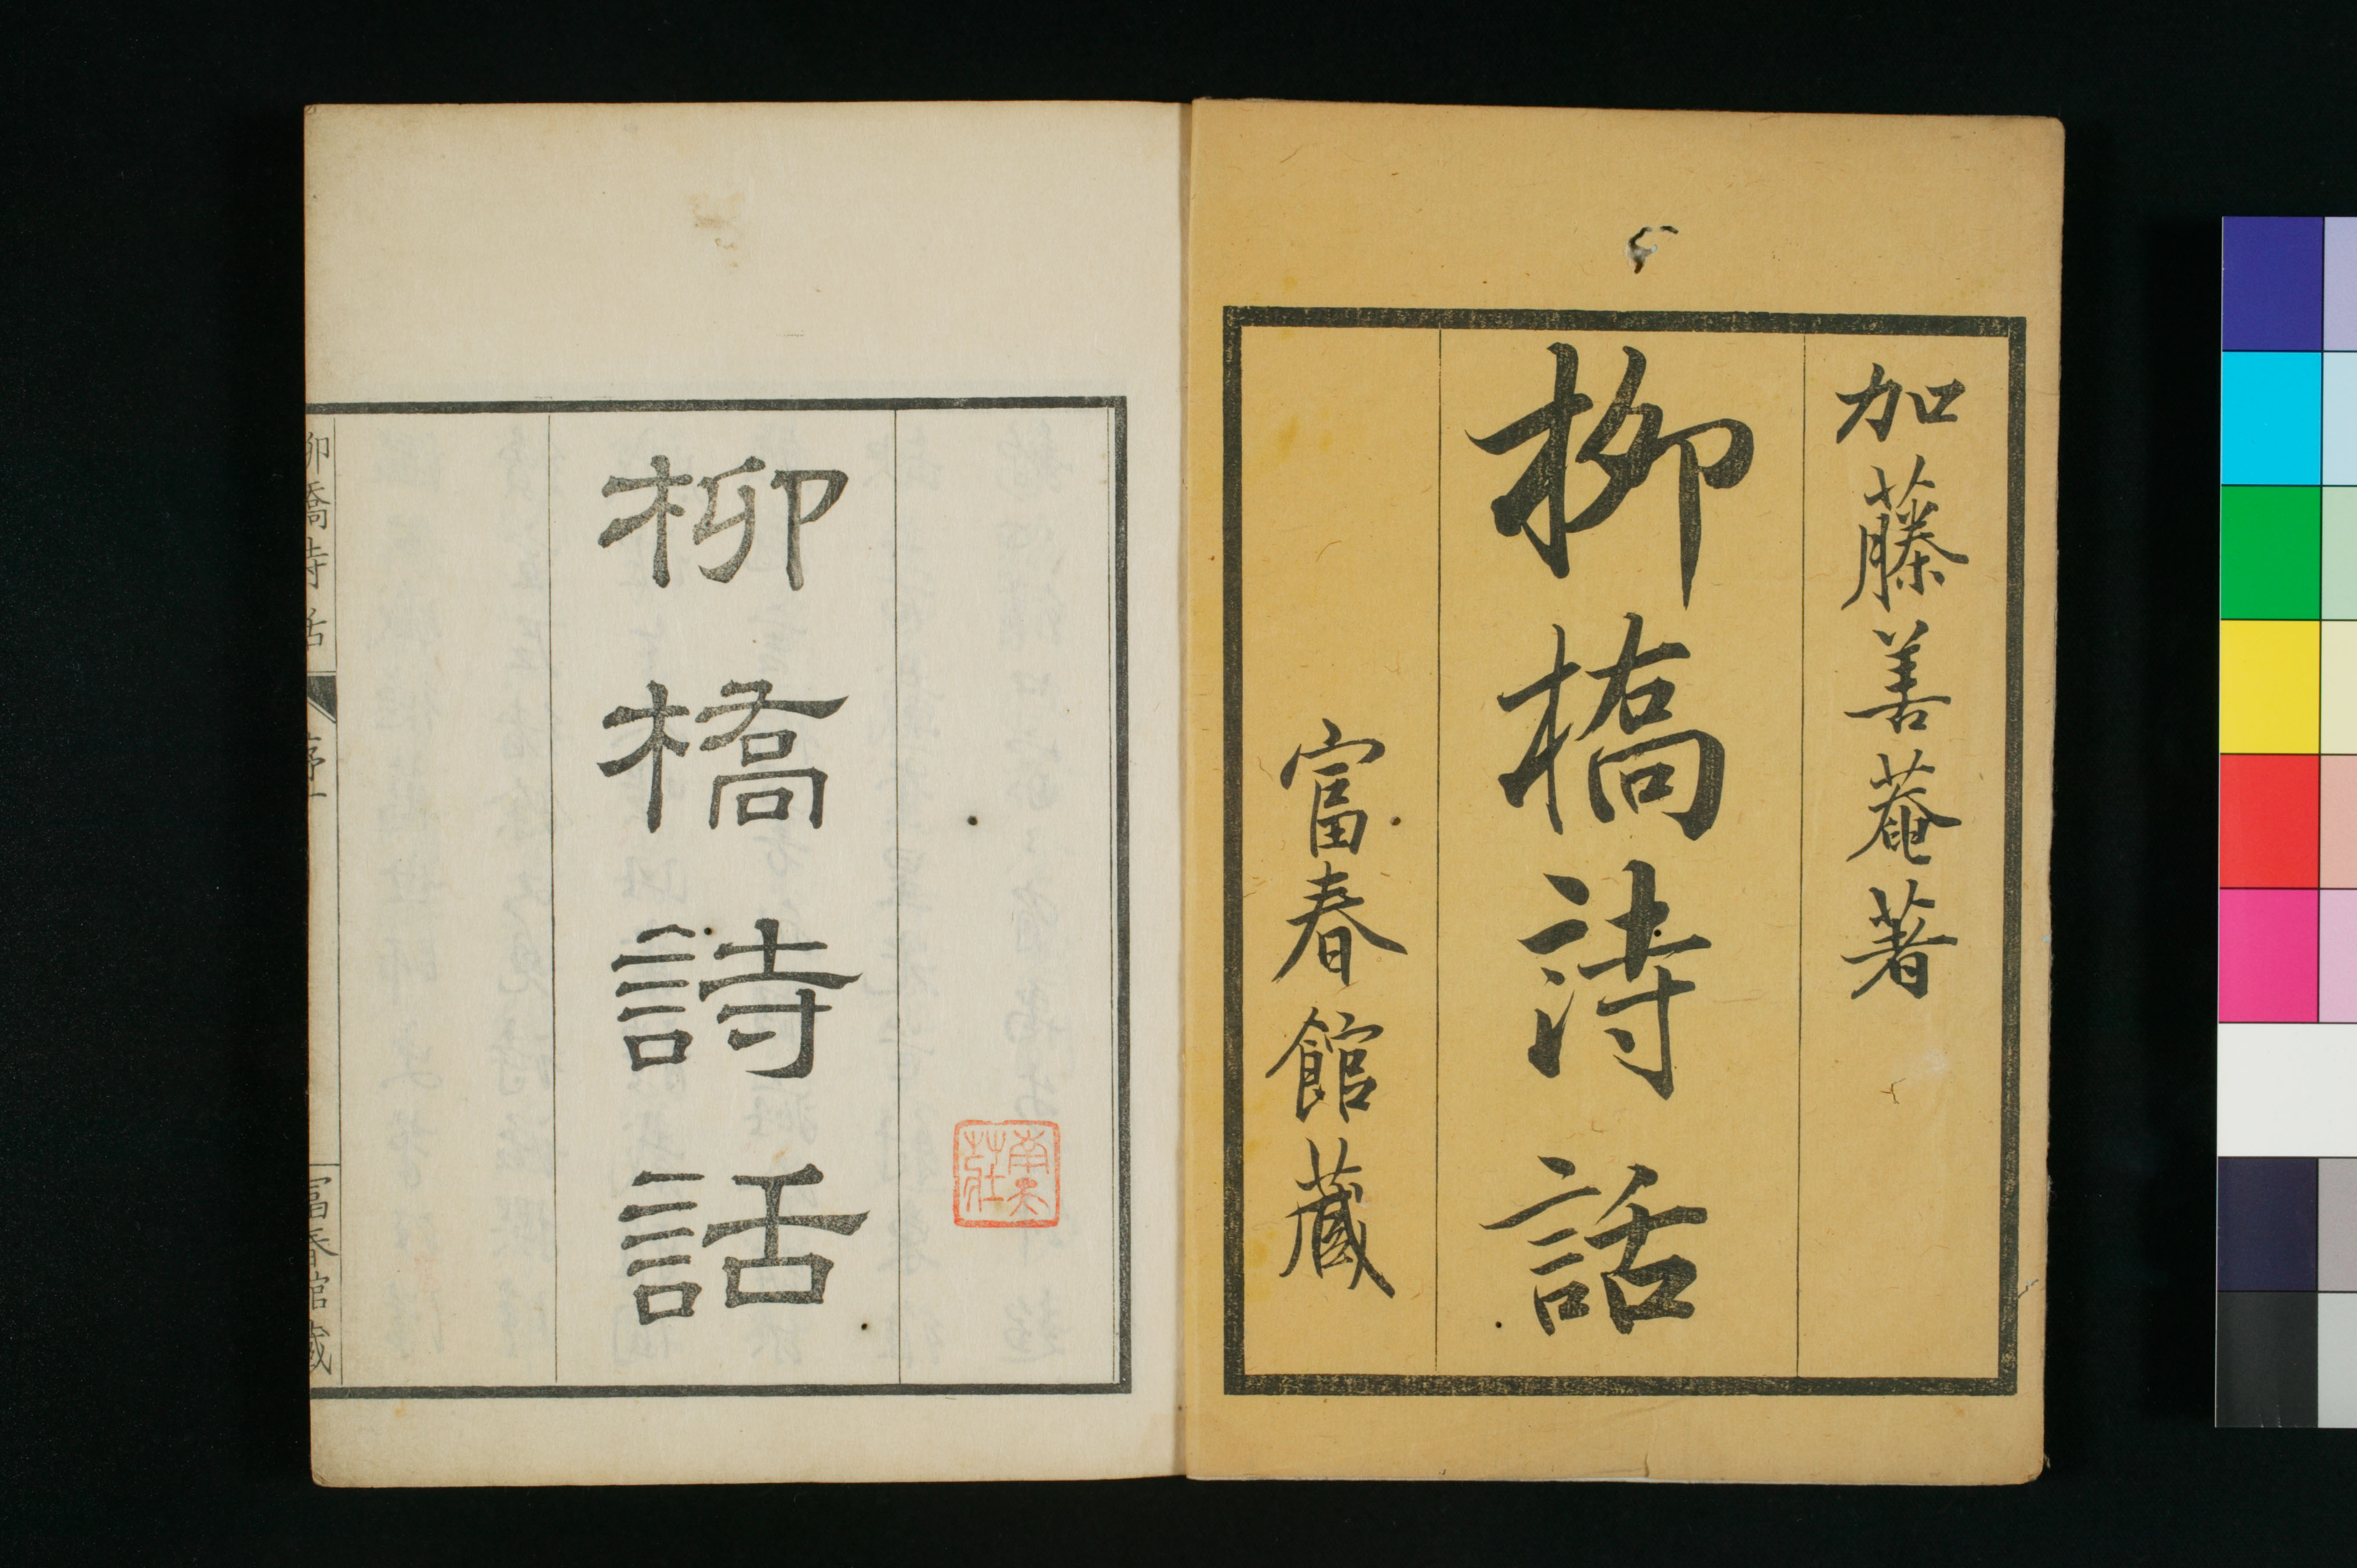 加藤善菴著
柳橋詩話
富春館藏
柳橋詩話
柳橋詩話
序
一
富春館藏